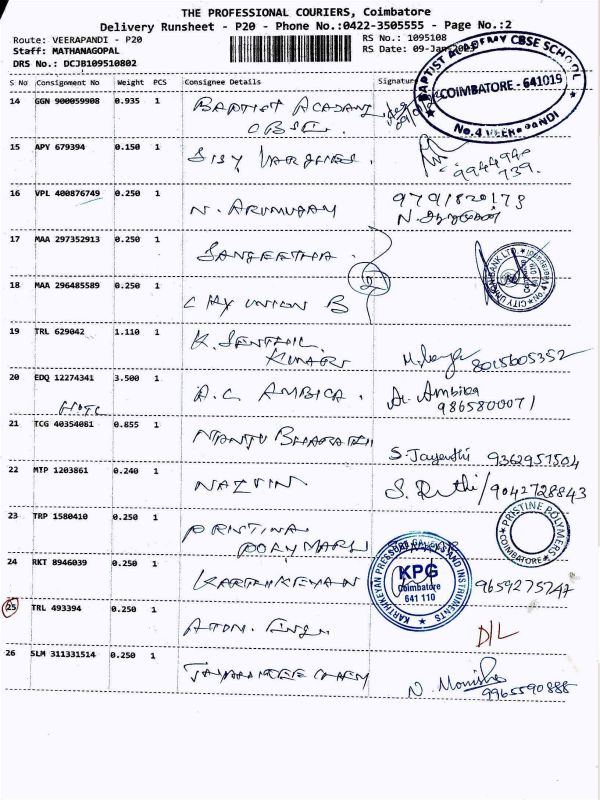 THE PROFESSIONAL COURIERS, Coimbatore
Delivery Runsheet - P20 - Phone No.:0422-3505555 - Page No.:2
Route: VEERAPANDI - P20
RS No.: 1095108
Staff: MATHANAGOPAL
RS Date: 09-Jan
DRS No.: DCJB109510802
BAPTIST ACADEMY CBSE SCHOOL
COIMBATORE - 641019
No.4 VEERAPANDI
S No Consignment No Weight PCS Consignee Details Signature
14 GGN 900059908 0.935 1 BAPTIST ACADAMY
CBSE.
15 APY 679394 0.150 1 SISY VARGHEES.
9944940
739.
16 VPL 400876749 0.250 1 N. ARUMUGAM 9791820173
N. ஆறுமுகம்
17 MAA 297352913 0.250 1 SANGEETHA.
CITY UNION BANK LTD.
18 MAA 296485589 0.250 1 CITY UNION B
19 TRL 629042 1.110 1 K. SENTHIL
KUMAR 8015605352
20 EDQ 12274341 3.500 1 A.C. AMBICA. Ac. Ambika
9865800071
21 TCG 40354081 0.855 1 BHARATHI S. Jayanthi 9362957504
22 MTP 1203861 0.240 1 NAZVIN S. Ruthi/9042728843
23 TRP 1580410 0.250 1 PRISTINA
POLYMARS
PRISTINE POLYMERS
COIMBATORE
24 RKT 8946039 0.250 1 KARTHIKEYAN 9659275747
KPG
Coimbatore
641 110
25 TRL 493394 0.250 1 D/L
26 SLM 311331514 0.250 1 N. Monisha
9965590888